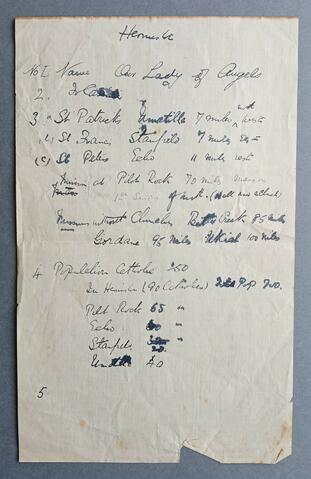 Hermiston
No I Name Our Lady of Angels
2.
3 (a) St Patricks Umatilla 7 miles west
(b) St Francis Stanfield 7 miles East
(c) St Peters Echo 11 miles west
Mission at Pilot Rock 70 miles
1st Sunday of mth. (Well attend)
Missions without Churches Butter Creek 85 miles
Gordane 95 miles Ukiah 100 miles
4 Population Catholic 260
In Hermiston (90 Catholics) Pop 700.
Pilot Rock 65 "
Echo "
Stanfield 20 "
Umatilla 40
5